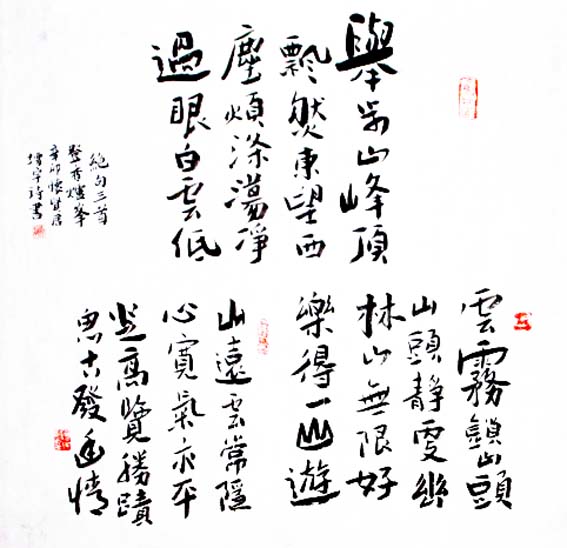 舉步山峰頂
飄然東望西
塵煩滌蕩淨
過眼白雲低
雲霧鎖山頭
山頭靜更幽
林山無限好
樂得一山遊
山遠雲常隱
心寬氣亦平
登高覽勝蹟
思古發幽情
絕句三首
登香爐峯
辛卯
詩書